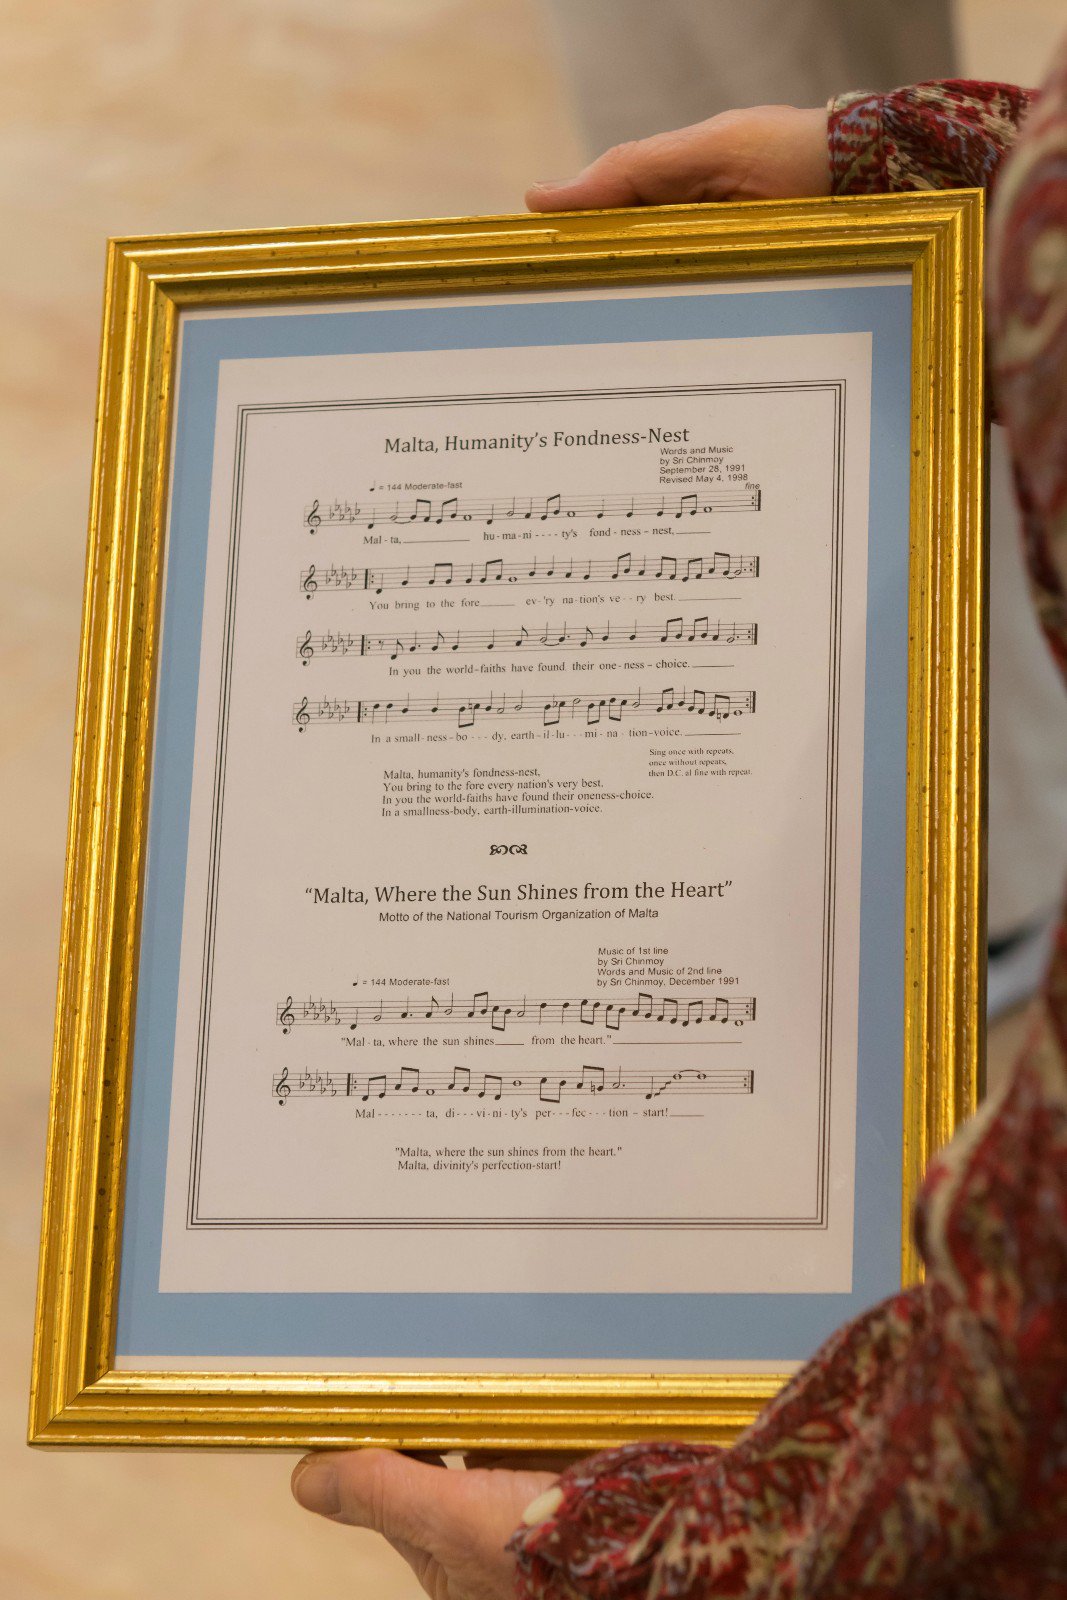 Malta, Humanity's Fondness-Nest
Words and Music
by Sri Chinmoy
September 28, 1991
Revised May 4, 1998
♩ = 144 Moderate-fast
fine
Mal - ta,________ hu - ma - ni - - - - ty's fond - ness - nest,_____
You bring to the fore_____ ev - 'ry na - tion's ve - - ry best.________
In you the world - faiths have found their one - ness - choice._____
In a small - ness - bo - - - dy, earth - il - lu - - - mi - na - tion - voice.________
Sing once with repeats,
once without repeats,
then D.C. al fine with repeat.
Malta, humanity's fondness-nest,
You bring to the fore every nation's very best.
In you the world-faiths have found their oneness-choice.
In a smallness-body, earth-illumination-voice.
“Malta, Where the Sun Shines from the Heart”
Motto of the National Tourism Organization of Malta
Music of 1st line
by Sri Chinmoy
Words and Music of 2nd line
by Sri Chinmoy, December 1991
♩ = 144 Moderate-fast
"Mal - ta, where the sun shines_____ from the heart."________
Mal - - - - - - - ta, di - - - vi - ni - ty's per - - - fec - - - tion - start!_____
"Malta, where the sun shines from the heart."
Malta, divinity's perfection-start!